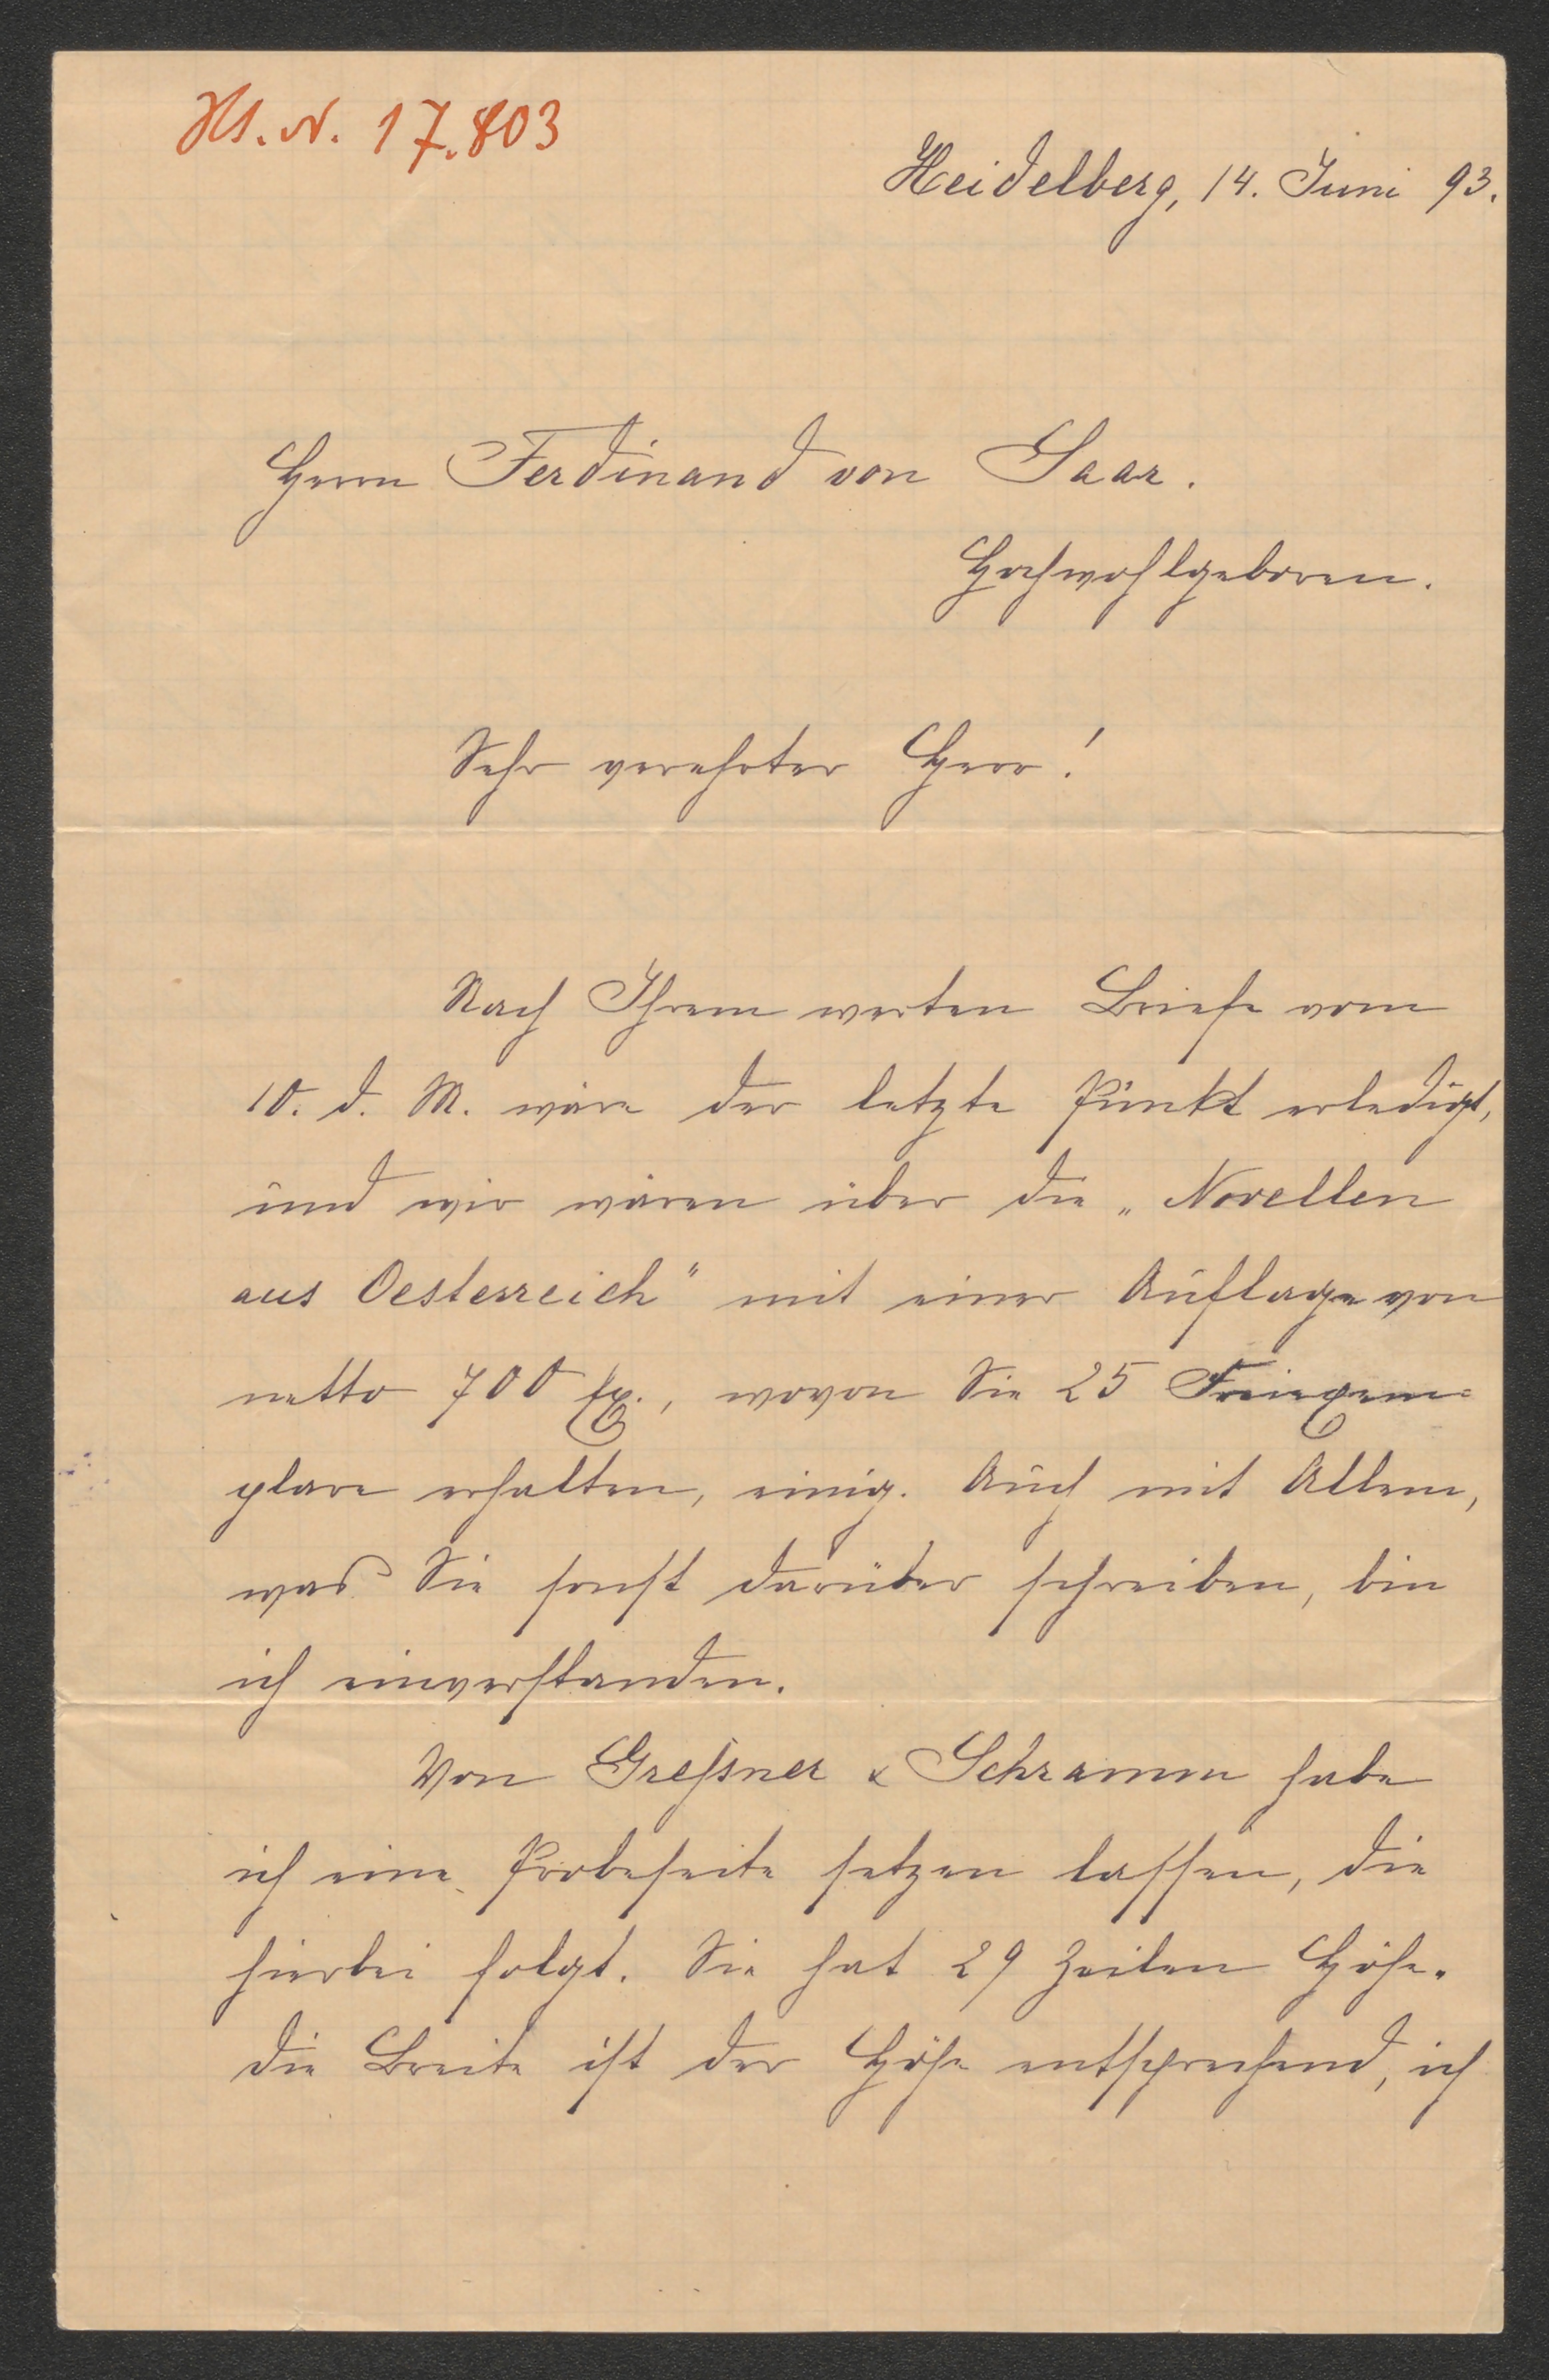 Hs. N. 17.803
Heidelberg, 14. Juni 93.
Herrn Ferdinand von Saar.
Hochwohlgeboren.
Sehr verehrter Herr!
Nach Ihrem werten Briefe vom
10. d. M. wäre der letzte Punkt erledigt,
und wir wären über die „Novellen
aus Oesterreich" mit einer Auflage von
netto 700 Ex., wovon Sie 25 Freiexem=
plare erhalten, einig. Auch mit Allem,
was Sie sonst darüber schreiben, bin
ich einverstanden.
Von Greßner & Schramm habe
ich eine Probeseite setzen lassen, die
hierbei folgt. Sie hat 29 Zeilen Höhe.
die Breite ist der Höhe entsprechend, ich